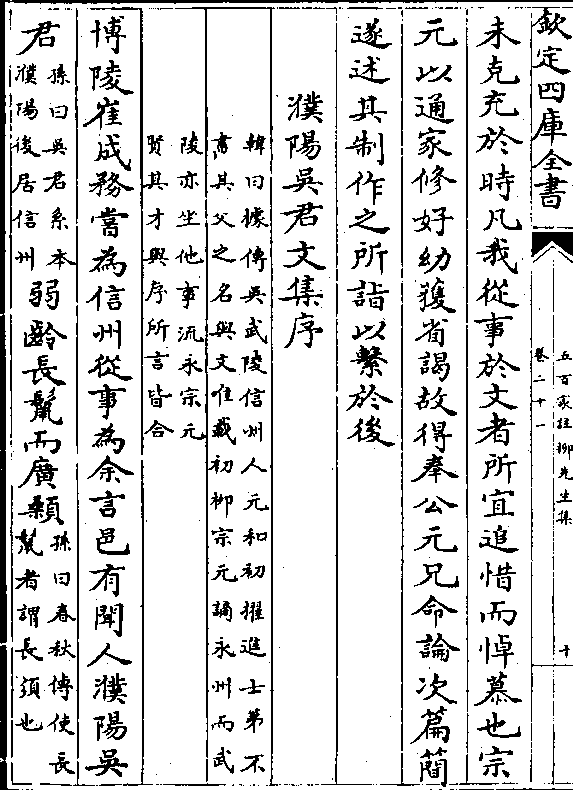 欽定四庫全書
五百家註柳先生集
卷二十一
十
未克充於時凡我從事於文者所宜追惜而悼慕也宗
元以通家修好幼獲省謁故得奉公元兄命論次篇簡
遂述其制作之所詣以繫於後
濮陽吳君文集序
韓曰據傳吳武陵信州人元和初擢進士第不
書其父之名與文但載初柳宗元謫永州而武
陵亦坐他事流永宗元
賢其才與序所言皆合
博陵崔成務嘗為信州從事為余言邑有聞人濮陽吳
君孫曰吳君系本濮陽後居信州弱齡長鬣而廣顙孫曰春秋傳使長鬣者謂長須也